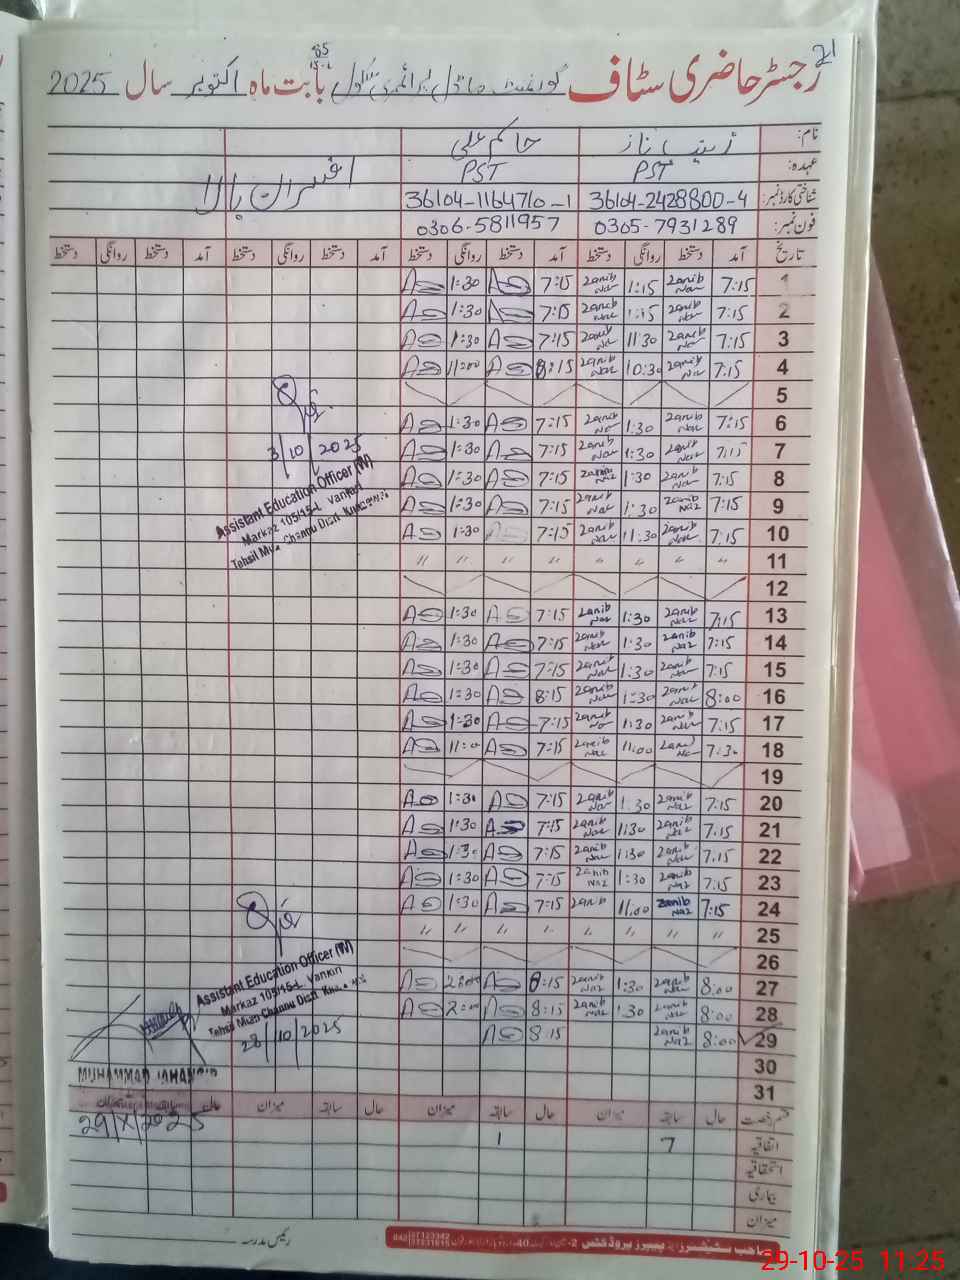 21
رجسٹر حاضری سٹاف گورنمنٹ ماڈل پرائمری سکول بابت ماہ اکتوبر سال 2025
85
15-L
نام: زینب ناز حاکم علی
عہدہ: PST PST افسران بالا
شناختی کارڈ نمبر: 36104-2428800-4 36104-1164710-1
فون نمبر: 0305-7931289 0306-5811957
تاریخ آمد دستخط روانگی دستخط آمد دستخط روانگی دستخط آمد دستخط روانگی دستخط آمد دستخط روانگی دستخط
1 7:15 Zanib Naz 1:15 Zanib Naz 7:15 1:30
2 7:15 Zanib Naz 1:15 Zanib Naz 7:15 1:30
3 7:15 Zanib Naz 11:30 Zanib Naz 7:15 1:30
4 7:15 Zanib Naz 10:30 Zanib Naz 8:15 11:00
5
6 7:15 Zanib Naz 1:30 Zanib Naz 7:15 1:30
7 7:15 Zanib Naz 1:30 Zanib Naz 7:15 1:30
8 7:15 Zanib Naz 1:30 Zanib Naz 7:15 1:30
9 7:15 Zanib Naz 1:30 Zanib Naz 7:15 1:30
10 7:15 Zanib Naz 11:30 Zanib Naz 7:15 1:30
11 " " " " " " " "
12
13 7:15 Zanib Naz 1:30 Zanib Naz 7:15 1:30
14 7:15 Zanib Naz 1:30 Zanib Naz 7:15 1:30
15 7:15 Zanib Naz 1:30 Zanib Naz 7:15 1:30
16 8:00 Zanib Naz 1:30 Zanib Naz 8:15 1:30
17 7:15 Zanib Naz 1:30 Zanib Naz 7:15 1:30
18 7:30 Zanib Naz 11:00 Zanib Naz 7:15 11:0
19
20 7:15 Zanib Naz 1:30 Zanib Naz 7:15 1:30
21 7:15 Zanib Naz 1:30 Zanib Naz 7:15 1:30
22 7:15 Zanib Naz 1:30 Zanib Naz 7:15 1:30
23 7:15 Zanib Naz 1:30 Zanib Naz 7:15 1:30
24 7:15 Zanib Naz 11:00 Zanib 7:15 1:30
25 " " " " " " " "
26
27 8:00 Zanib Naz 1:30 Zanib Naz 8:15 2:00
28 8:00 Zanib Naz 1:30 Zanib Naz 8:15 2:00
29 8:00 Zanib Naz 8:15
30
31
3/10/2025
Assistant Education Officer (W)
Markaz 105/15-L Vanjari
Tehsil Mian Channu Distt
Assistant Education Officer (W)
Markaz 105/15-L
Tehsil Mian Channu Distt
28/10/2025
MUHAMMAD JAHANGIR
29/X/2025
قسم رخصت حال سابقہ میزان حال سابقہ میزان حال سابقہ میزان حال سابقہ میزان
اتفاقیہ 7 1
استحقاقیہ
بیماری
میزان
رئیس مدرسہ
29-10-25 11:25